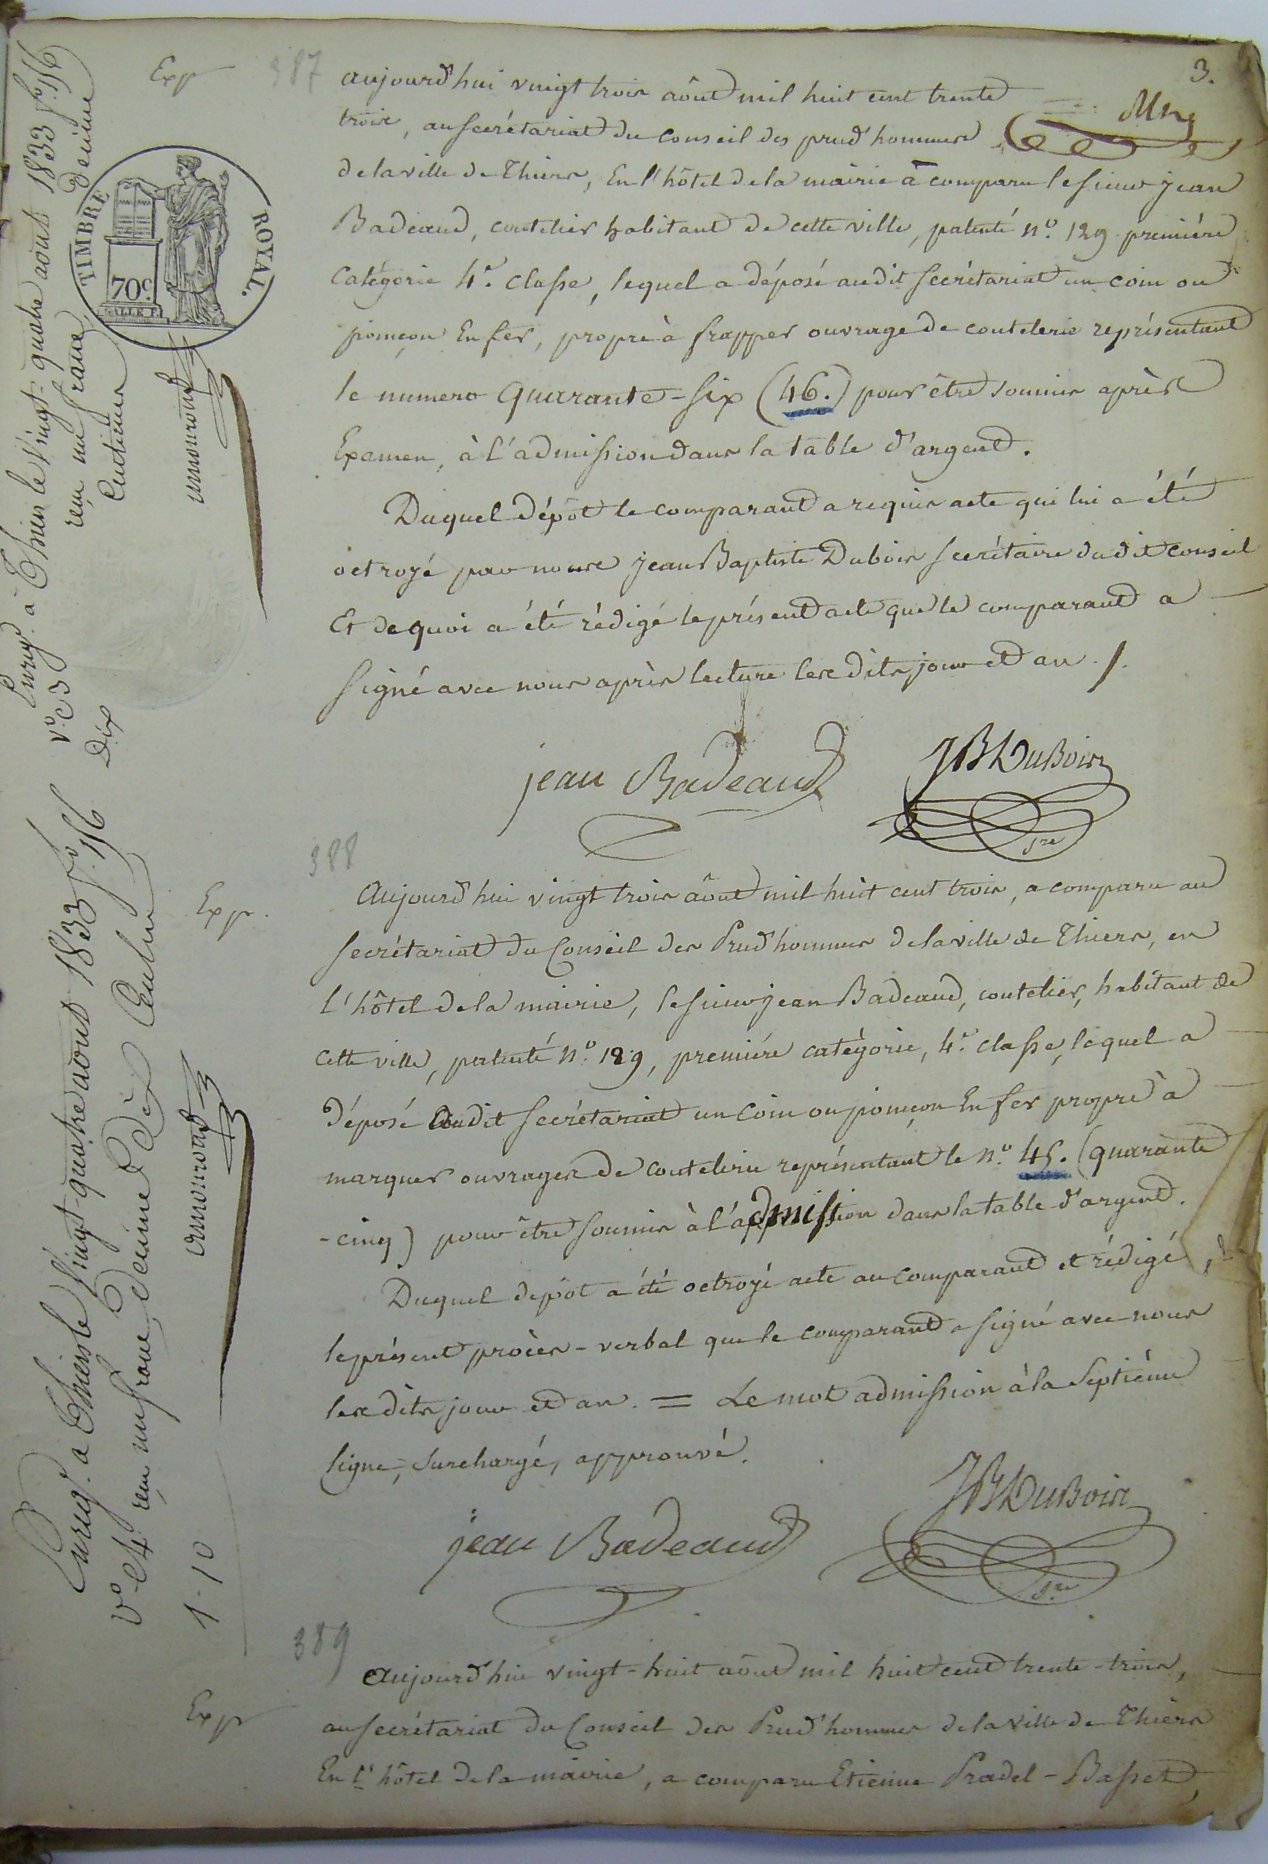 3.
Exp
387
aujourd'hui vingt trois août mil huit cent trente
trois, au secrétariat du conseil des prud'hommes
de la ville de Thiers, En l'hôtel de la mairie à comparu le sieur jean
Badeaud, coutelier habitant de cette ville, patenté n.º 129 première
catégorie 4.e classe, lequel a déposé audit secrétariat un coin ou
poinçon En fer, propre à frapper ouvrage de coutelerie représentant
le numero quarante-six (46.) pour être soumis après
Examen, à l'admission dans la table d'argent.
Duquel dépôt le comparant a requis acte qui lui a été
octroyé par nous jean Baptiste Dubois secrétaire dudit conseil
Et de quoi a été rédigé le présent acte que le comparant a
signé avec nous après lecture lesdits jour et an ./.
jean Badeaud
JB Dubois
s.re
TIMBRE ROYAL.
70c.
Enreg. à Thiers le vingt-quatre août 1833 f.º 116
v.º c 3 reçu un franc
Dix centimes
388
Exp.
Aujourd'hui vingt trois août mil huit cent trois, a comparu au
secrétariat du Conseil des Prud'hommes de la ville de Thiers, en
l'hôtel de la mairie, le sieur jean Badeaud, coutelier, habitant de
cette ville, patenté n.º 129, première catégorie, 4.e classe, lequel a
déposé audit secrétariat un coin ou poinçon En fer propre à
marquer ouvrages de coutelerie représentant le n.º 45. (quarante
-cinq) pour être soumis à l'admission dans la table d'argent.
Duquel dépôt a été octroyé acte au comparant et rédigé
le présent procès-verbal que le comparant a signé avec nous
lesdits jour et an. = Le mot admission à la septième
ligne, surchargé, approuvé.
jean Badeaud
JB Dubois
s.re
Enreg. à Thiers le vingt-quatre août 1833 f.º 116
v.º c 4 reçu un franc, décime Dix Centimes
1-10
389
Exp
Aujourd'hui vingt-huit août mil huit cent trente-trois,
au secrétariat du Conseil des Prud'hommes de la ville de Thiers
En l'hôtel de la mairie, a comparu Etienne Pradel-Basset,